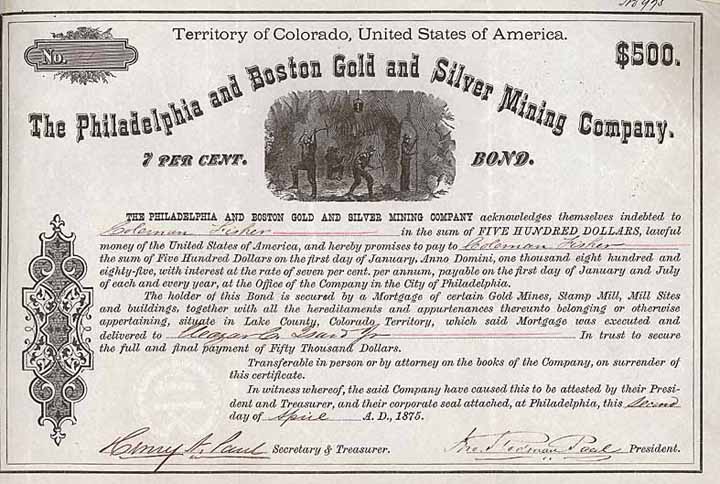 No 978
Territory of Colorado, United States of America.
No.
$500.
The Philadelphia and Boston Gold and Silver Mining Company.
7 PER CENT. BOND.
THE PHILADELPHIA AND BOSTON GOLD AND SILVER MINING COMPANY acknowledges themselves indebted to
Coleman Fisher in the sum of FIVE HUNDRED DOLLARS, lawful
money of the United States of America, and hereby promises to pay to Coleman Fisher
the sum of Five Hundred Dollars on the first day of January, Anno Domini, one thousand eight hundred and
eighty-five, with interest at the rate of seven per cent. per annum, payable on the first day of January and July
of each and every year, at the Office of the Company in the City of Philadelphia.
The holder of this Bond is secured by a Mortgage of certain Gold Mines, Stamp Mill, Mill Sites
and buildings, together with all the hereditaments and appurtenances thereunto belonging or otherwise
appertaining, situate in Lake County, Colorado Territory, which said Mortgage was executed and
delivered to Jr In trust to secure
the full and final payment of Fifty Thousand Dollars.
Transferable in person or by attorney on the books of the Company, on surrender of
this certificate.
In witness whereof, the said Company have caused this to be attested by their Presi-
dent and Treasurer, and their corporate seal attached, at Philadelphia, this Second
day of April A. D., 1875.
Henry N. Paul Secretary & Treasurer. Paul President.